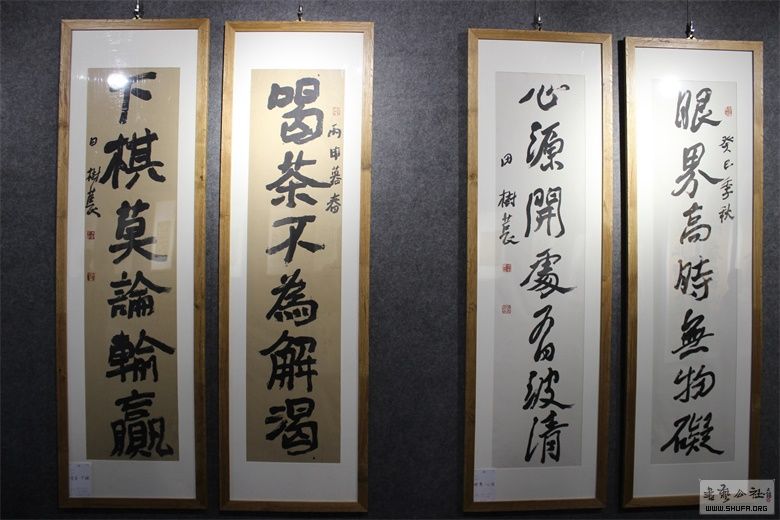 癸巳季秋
眼界高時無物礙
心源開處有波清
田樹萇
丙申暮春
喝茶不為解渴
下棋莫論輸贏
田樹萇
書藝公社
WWW.SHUFA.ORG